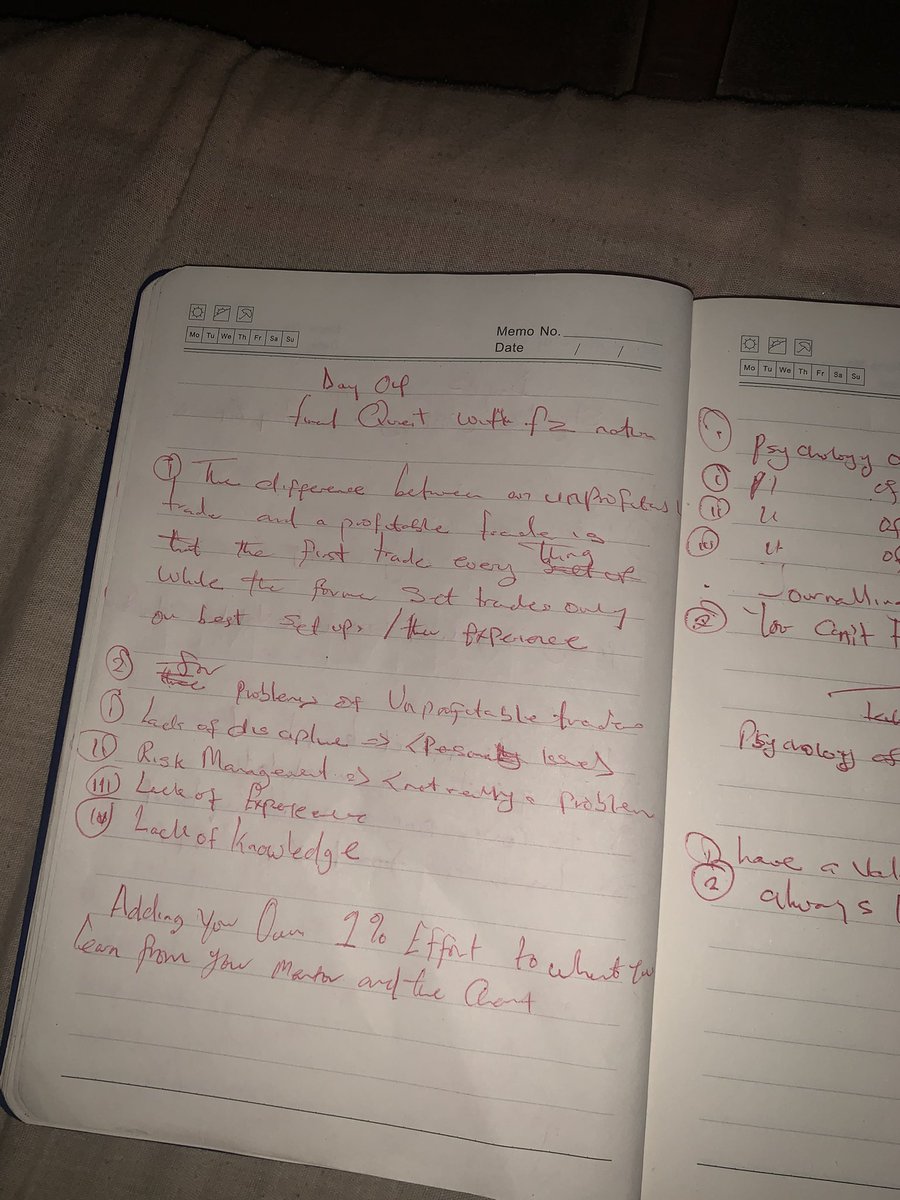 Memo No.
Date / /
Mo Tu We Th Fr Sa Su
Day 04
with fz
① The difference between an unprofitab
trade and a profitable trade is
that the first trade every thing
while the former set trades only
on best set ups / the experience
② for problems of Unprofitable trades
① Lack of discipline => <Personal level
ii Risk Management => <not really a problem
iii Lack of Experience
iv Lack of Knowledge
Adding your Own 1% Effort to what you
learn from your mentor and the Chart
Mo Tu We Th Fr Sa Su
Psychology o
of
ii u of
u of
Journallin
② You Can't
Psychology of
① have a Val
② always